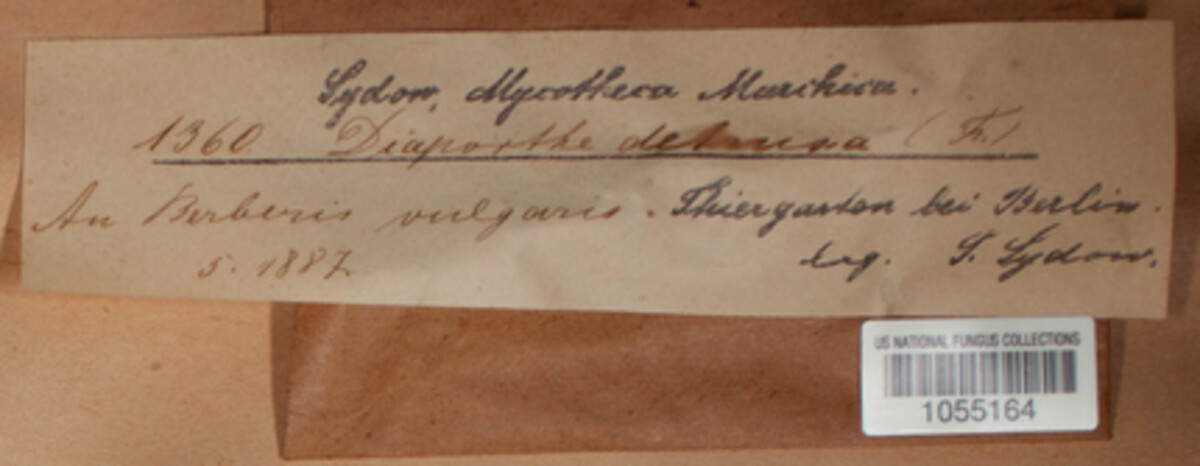 Sydow, Mycotheca Marchica.
1360. Diaporthe detrusa (Fr.)
An Berberis vulgaris. Thiergarten bei Berlin.
5. 1887. leg. P. Sydow.
US NATIONAL FUNGUS COLLECTIONS
1055164